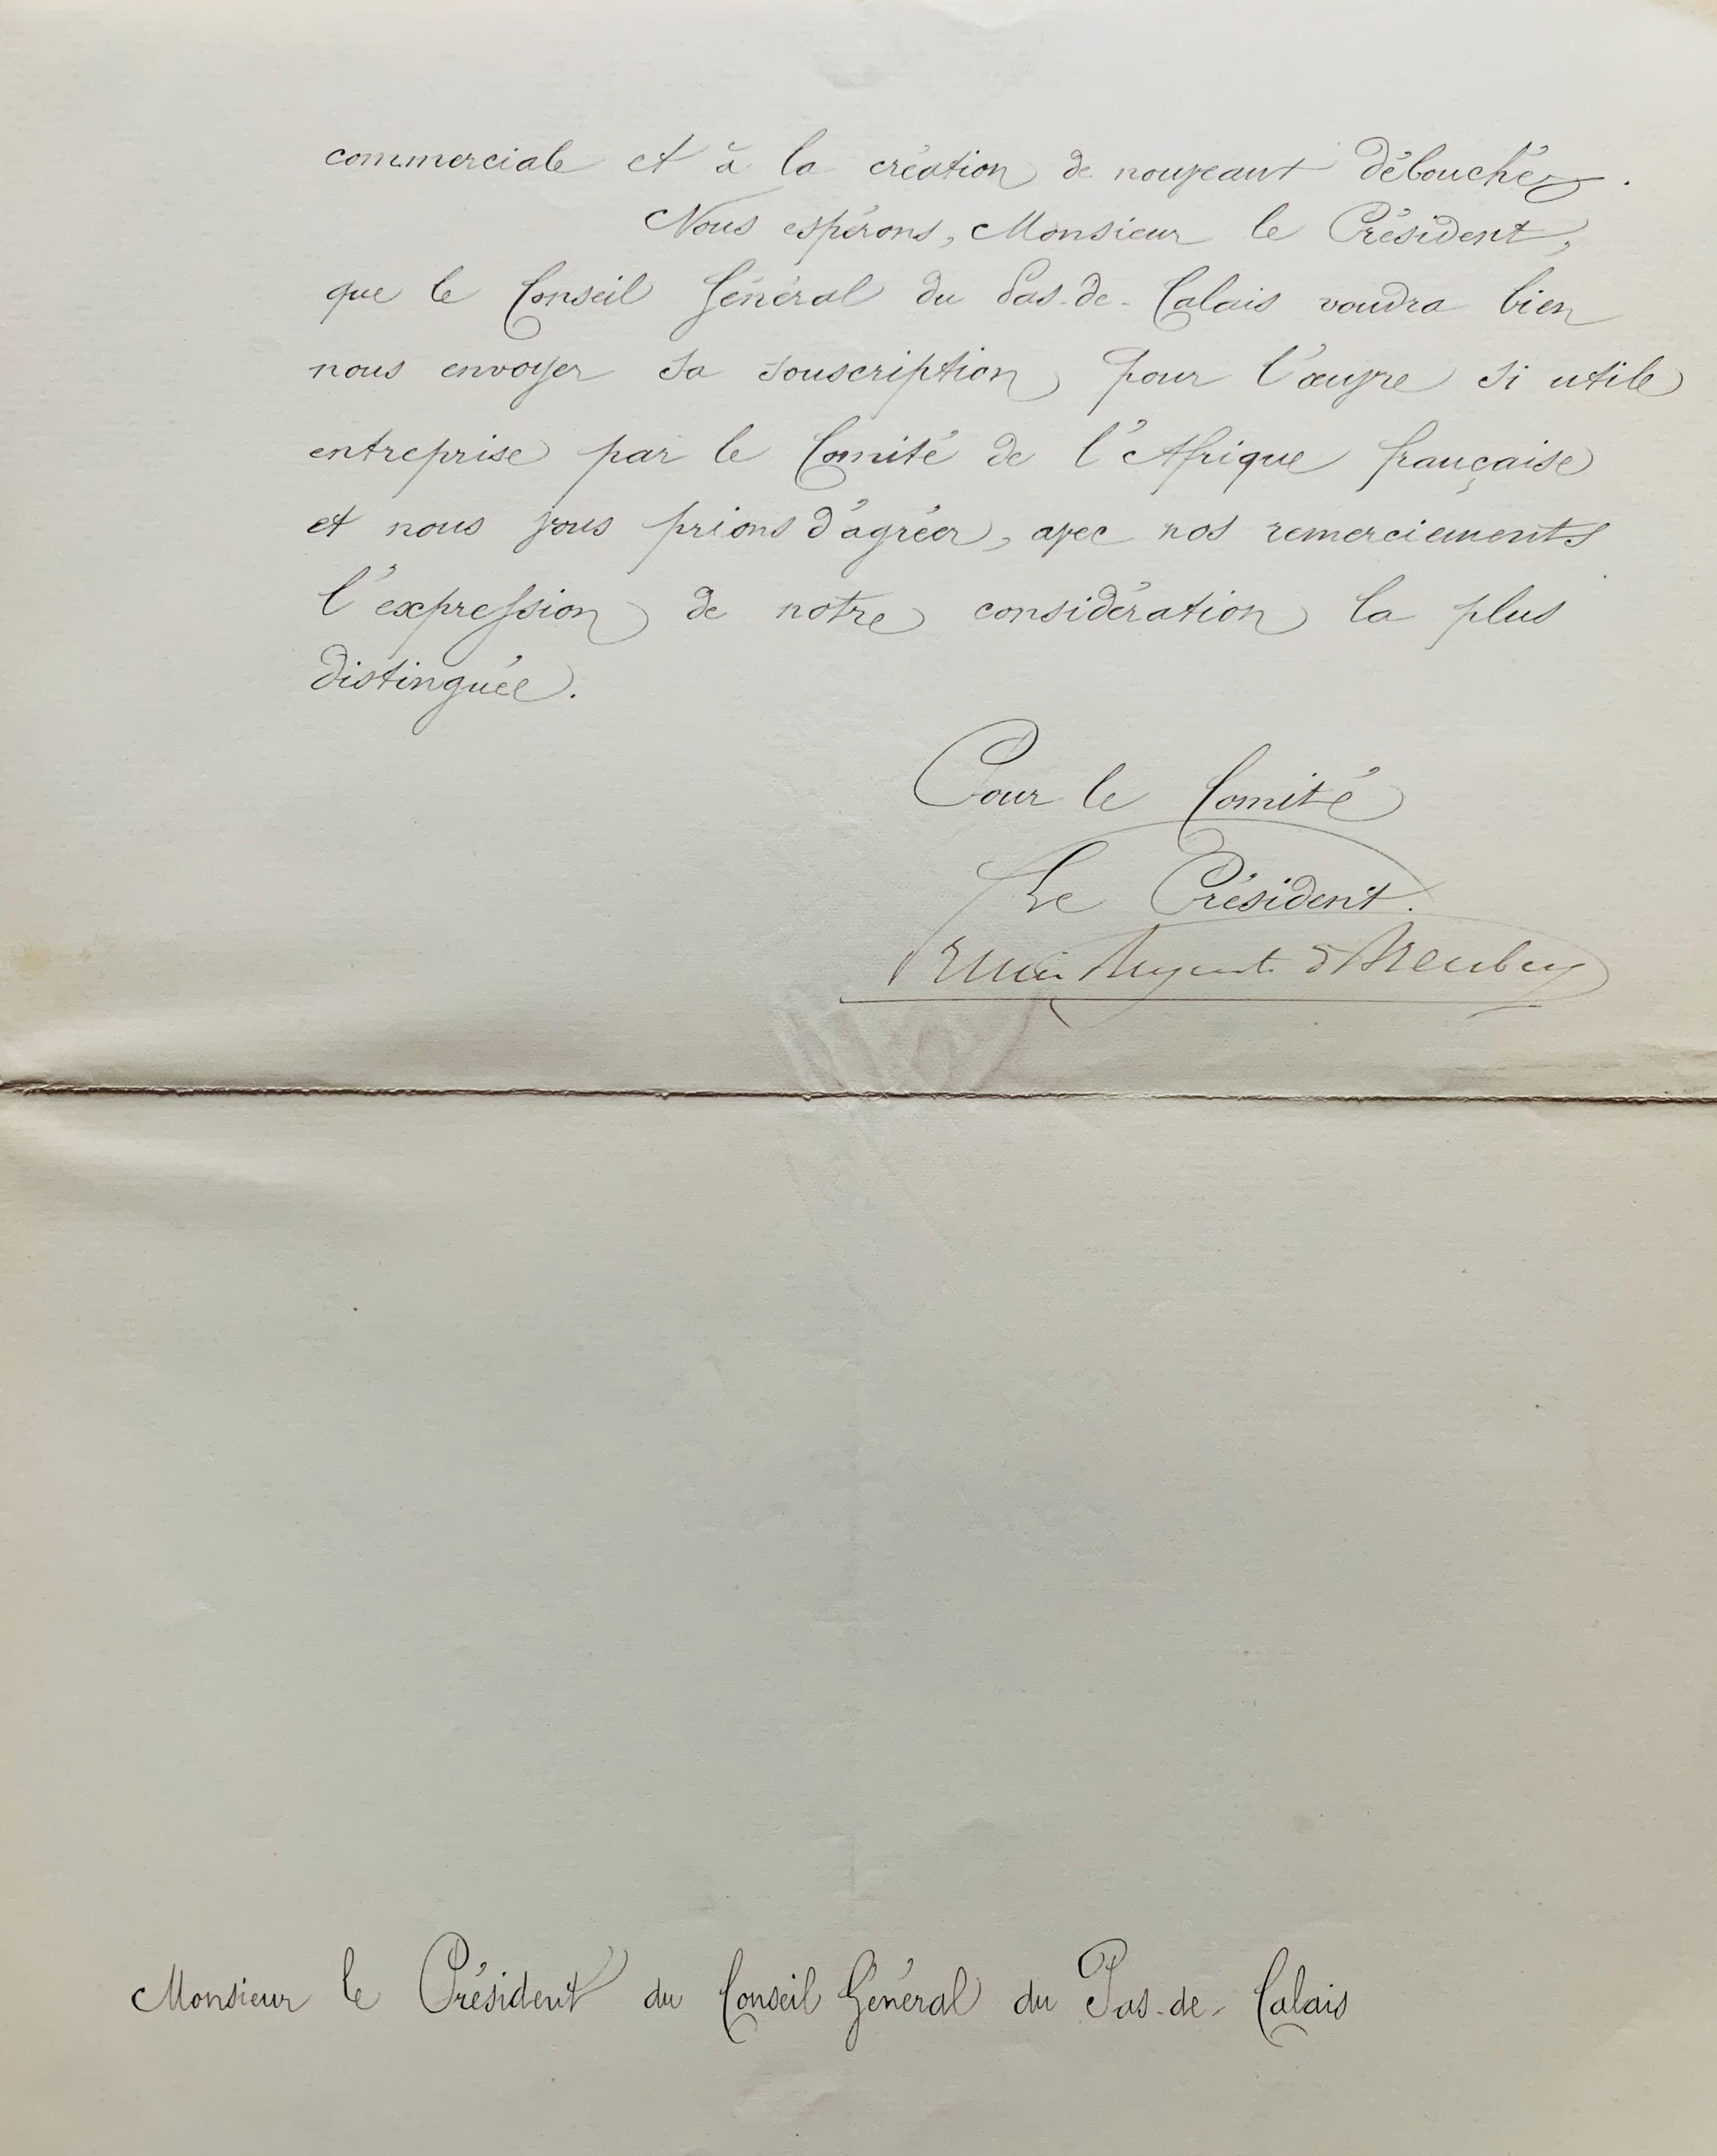 commerciale et à la création de nouveaux débouchés.
Nous espérons, Monsieur le Président,
que le Conseil Général du Pas-de-Calais voudra bien
nous envoyer sa souscription pour l'œuvre si utile
entreprise par le Comité de l'Afrique française
et nous vous prions d'agréer, avec nos remerciements
l'expression de notre considération la plus
distinguée.
Pour le Comité
Le Président.
Prince Auguste d'Arenberg
Monsieur le Président du Conseil Général du Pas-de-Calais